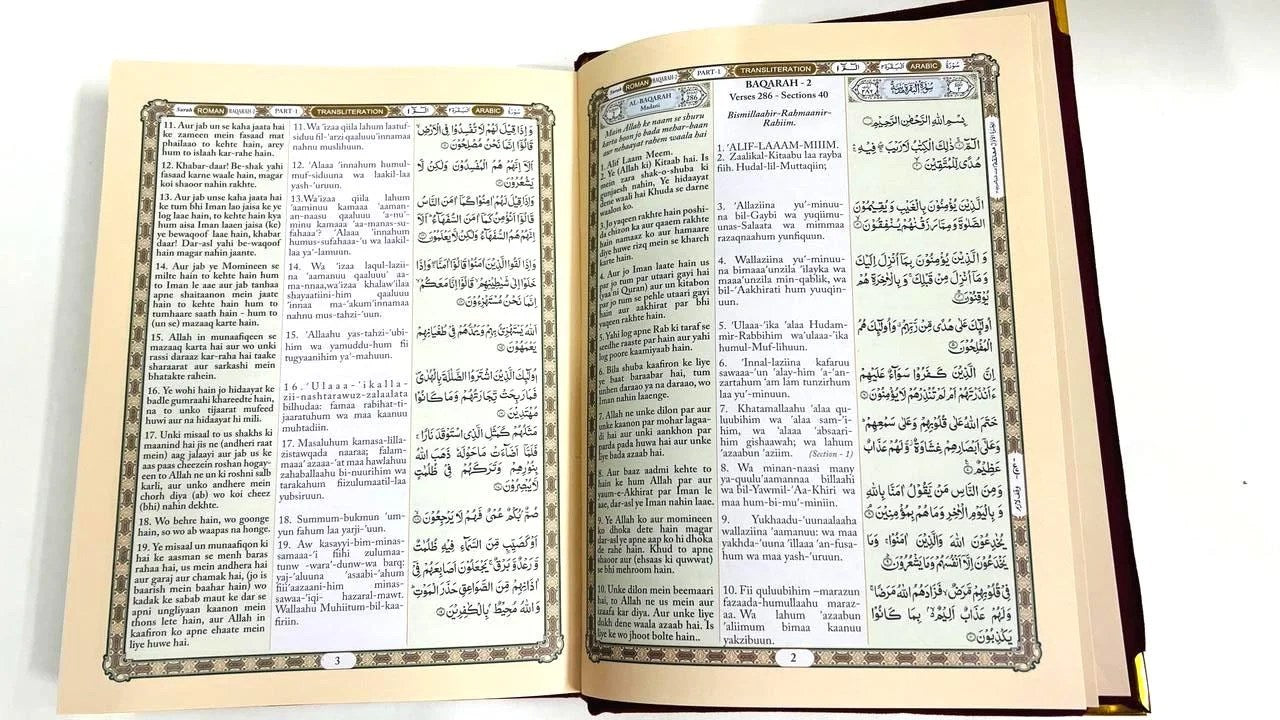 Surah ROMAN BAQARAH-2 PART-1 TRANSLITERATION الٓمّٓ ١ البقرة ٢ ARABIC سُورَة
AL-BAQARAH
Madani
286
Main Allah ke naam se shuru
karta hoon jo bada mehar-baan
aur nehaayat rahem waala hai
1. Alif Laam Meem.
2. Ye (Allah ki) Kitaab hai. Is
mein zara shak-o-shuba ki
gunjaesh nahin, Ye hidaayat
dene waali hai Khuda se darne
waalon ko.
3. Jo yaqeen rakhte hain poshi-
da chizon ka aur qaaem rakhte
hain namaaz ko aur hamaare
diye huwe rizq mein se kharch
karte hain.
4. Aur jo Iman laate hain us
par jo tum par utaari gayi hai
(yaa ni Quran) aur un kitabon
par jo tum se pehle utaari gayi
hai aur aakhirat par bhi
yaqeen rakhte hain.
5. Yahi log apne Rab ki taraf se
sedhe raaste par hain aur yahi
log poore kaamiyaab hain.
6. Bila shuba kaafiron ke liye
ye baat baraabar hai, tum
unhen daraao ya na daraao, wo
Iman nahin laaenge.
7. Allah ne unke dilon par aur
unke kaanon par mohar lagaa-
di hai aur unki aankhon par
parda pada huwa hai aur unke
liye bada azaab hai.
8. Aur baaz aadmi kehte to
hain ke hum Allah par aur
yaum-e-Akhirat par Iman le
aae, dar-asl ye Iman nahin laae.
9. Ye Allah ko aur momineen
ko dhoka dete hain magar
dar-asl ye apne aap ko hi dhoka
de rahé hain. Khud to apne
shaoor aur (ehsaas ki quwwat)
se bhi mehroom hain.
10. Unke dilon mein beemaari
hai, to Allah ne us mein aur
izaafa kar diya. Aur unke liye
dukh dene waala azaab hai. Is
liye ke wo jhoot bolte hain..
BAQARAH - 2
Verses 286 - Sections 40
Bismillaahir-Rahmaanir-
Rahiim.
1. 'ALIF-LAAAM-MIIIM.
2. Zaalikal-Kitaabu laa rayba
fiih. Hudal-lil-Muttaqiin;
3. 'Allaziina yu'-minuu-
na bil-Gaybi wa yuqiimu-
unas-Salaata wa mimmaa
razaqnaahum yunfiqun.
4. Wallaziina yu'-minuu-
na bimaaa'unzila 'ilayka wa
maaa'unzila min-qablik, wa
bil-'Aakhirati hum yuuqin-
uun.
5. 'Ulaaa-'ika 'alaa Hudam-
mir-Rabbihim wa'ulaaa-'ika
humul-Muf-lihuun.
6. 'Innal-laziina kafaruu
sawaaa-'un 'alay-him 'a-'an-
zartahum 'am lám tunzirhum
laa yu'-minuun.
7. Khatamallaahu 'alaa qu-
luubihim wa 'alaa sam-'i-
him, wa 'alaaa 'absaari-
him gishaawah; wa lahum
'azaabun 'aziim. (Section - 1)
8. Wa minan-naasi many
ya-quulu'aamannaa billaahi
wa bil-Yawmil-'Aa-Khiri wa
maa hum-bi-mu'-miniin.
9. Yukhaadu-'unaalaaha
wallaziina 'aamanuu: wa maa
yakhda-'uuna 'illaaa 'an-fusa-
hum wa maa yash-'uruun.
10. Fii quluubihim –marazun
fazaada-humullaahu maraz-
aa. Wa lahum 'azaabun
'aliimum bimaa kaanuu
yakzibuun.
سُوْرَةُ الْبَقَرَةِ مَدَنِيَّة
بِسْمِ اللّٰهِ الرَّحْمٰنِ الرَّحِيْمِ
الٓمّٓ ذٰلِكَ الْكِتٰبُ لَا رَيْبَ فِيْهِ
هُدًى لِّلْمُتَّقِيْنَ
الَّذِيْنَ يُؤْمِنُوْنَ بِالْغَيْبِ وَيُقِيْمُوْنَ
الصَّلٰوةَ وَمِمَّا رَزَقْنٰهُمْ يُنْفِقُوْنَ
وَ الَّذِيْنَ يُؤْمِنُوْنَ بِمَآ اُنْزِلَ اِلَيْكَ
وَ مَآ اُنْزِلَ مِنْ قَبْلِكَ وَبِالْاٰخِرَةِ هُمْ
يُوْقِنُوْنَ
اُولٰٓئِكَ عَلٰى هُدًى مِّنْ رَّبِّهِمْ وَ اُولٰٓئِكَ هُمُ
الْمُفْلِحُوْنَ
اِنَّ الَّذِيْنَ كَفَرُوْا سَوَآءٌ عَلَيْهِمْ
ءَاَنْذَرْتَهُمْ اَمْ لَمْ تُنْذِرْهُمْ لَا يُؤْمِنُوْنَ
خَتَمَ اللّٰهُ عَلٰى قُلُوْبِهِمْ وَعَلٰى سَمْعِهِمْ
وَعَلٰٓى اَبْصَارِهِمْ غِشَاوَةٌ وَّلَهُمْ عَذَابٌ
عَظِيْمٌ
وَمِنَ النَّاسِ مَنْ يَّقُوْلُ اٰمَنَّا بِاللّٰهِ
وَ بِالْيَوْمِ الْاٰخِرِ وَمَا هُمْ بِمُؤْمِنِيْنَ
يُخٰدِعُوْنَ اللّٰهَ وَالَّذِيْنَ اٰمَنُوْا وَمَا
يَخْدَعُوْنَ اِلَّآ اَنْفُسَهُمْ وَمَا يَشْعُرُوْنَ
فِيْ قُلُوْبِهِمْ مَّرَضٌ فَزَادَهُمُ اللّٰهُ مَرَضًا
وَلَهُمْ عَذَابٌ اَلِيْمٌ بِمَا كَانُوْا
يَكْذِبُوْنَ
2
Surah ROMAN BAQARAH-2 PART-1 TRANSLITERATION الٓمّٓ ١ البقرة ٢ ARABIC سُورَة
11. Aur jab un se kaha jaata hai
ke zameen mein fasaad mat
phailaao to kehte hain, arey
hum to islaah kar-rahe hain.
12. Khabar-daar! Be-shak yahi
fasaad karne waale hain, magar
koi shaoor nahin rakhte.
13. Aur jab unse kaha jaata hai
ke tum bhi Iman lao jaisa ke ye
log laae hain, to kehte hain kya
hum aisa Iman laaen jaisa (ke)
ye bewaqoof laae hain, khabar
daar! Dar-asl yahi be-waqoof
hain magar nahin jaante.
14. Aur jab ye Momineen se
milte hain to kehte hain hum
to Iman le aae aur jab tanhaa
apne shaitaanon mein jaate
hain to kehte hain hum to
tumhaare saath hain - hum to
(un se) mazaaq karte hain.
15. Allah in munaafiqeen se
mazaaq karta hai aur wo unki
rassi daraaz kar-raha hai taake
sharaarat aur sarkashi mein
bhatakte rahein.
16. Ye wohi hain jo hidaayat ke
badle gumraahi khareedte hain,
na to unko tijaarat mufeed
huwi aur na hidaayat hi mili.
17. Unki misaal to us shakhs ki
maanind hai jis ne (andheri raat
mein) aag jalaayi aur jab us ke
aas paas cheezein roshan hogay-
een to Allah ne un ki roshni salb
karli, aur unko andhere mein
chorh diya (ab) wo koi cheez
(bhi) nahin dekhte.
18. Wo behre hain, wo goonge
hain, so wo ab waapas na honge.
19. Ye misaal un munaafiqon ki
hai ke aasman se menh baras
rahaa hai, us mein andhera hai
aur garaj aur chamak hai, (jo is
baarish mein baahar hain) wo
kadak ke sabab maut ke dar se
apni ungliyaan kaanon mein
thons lete hain, aur Allah in
kaafiron ko apne ehaate mein
liye huwe hai.
11. Wa'izaa qiila lahum laatuf-
siduu fil-'arzi qaaluuu'innamaa
nahnu muslihuun.
12. 'Alaaa 'innahum humul-
muf-siduuna wa laakil-laa
yash-'uruun.
13.Wa'izaa qiila lahum
'aaminuu kamaaa 'aaman-
an-naasu qaaluuu 'a-nu'-
minu kamaaa 'aa-manas-su-
fahaaa'? 'Alaaa 'innahum
humus-sufahaaa-'u wa laakil-
laa ya'-lamuun.
14. Wa 'izaa laqul-lazii-
na 'aamanuu qaaluuu' aa-
ma-nnaa,wa'izaa khalaw'ilaa
shayaatiini-him qaaluuu
'innaa ma-'akum'innamaa
nahnu mus-tahzi-'uun.
15. 'Allaahu yas-tahzi-'ubi-
him wa yamuddu-hum fii
tugyaanihim ya'-mahuun.
16. 'Ulaaa-'ikalla-
zii-nashtarawuz-zalaalata
bilhudaa: famaa rabihat-ti-
jaaratuhum wa maa kaanuu
muhtadiin.
17. Masaluhum kamasa-lilla-
zistawqada naaraa; falam-
maaa' azaaa-'at maa hawlahuu
zahaballaahu bi-nuurihim wa
tarakahum fiizulumaatil-laa
yubsiruun.
18. Summum-bukmun 'um-
yun fahum laa yarji-'uun.
19. Aw kasayyi-bim-minas-
samaaa-'i fiihi zulumaa-
tunw -wara'-dunw-wa barq:
yaj-'aluuna 'asaabi-'ahum
fiii'aazaani-him minas-
sawaa-'iqi- hazaral-mawt.
Wallaahu Muhiitum-bil-kaa-
firiin.
وَ اِذَا قِيْلَ لَهُمْ لَا تُفْسِدُوْا فِي الْاَرْضِ
قَالُوْٓا اِنَّمَا نَحْنُ مُصْلِحُوْنَ
اَلَآ اِنَّهُمْ هُمُ الْمُفْسِدُوْنَ وَلٰكِنْ لَّا
يَشْعُرُوْنَ
وَاِذَا قِيْلَ لَهُمْ اٰمِنُوْا كَمَآ اٰمَنَ النَّاسُ
قَالُوْٓا اَنُؤْمِنُ كَمَآ اٰمَنَ السُّفَهَآءُ اَلَآ
اِنَّهُمْ هُمُ السُّفَهَآءُ وَلٰكِنْ لَّا يَعْلَمُوْنَ
وَاِذَا لَقُوا الَّذِيْنَ اٰمَنُوْا قَالُوْٓا اٰمَنَّا وَاِذَا
خَلَوْا اِلٰى شَيٰطِيْنِهِمْ قَالُوْٓا اِنَّا مَعَكُمْ
اِنَّمَا نَحْنُ مُسْتَهْزِءُوْنَ
اَللّٰهُ يَسْتَهْزِئُ بِهِمْ وَيَمُدُّهُمْ فِيْ طُغْيَانِهِمْ
يَعْمَهُوْنَ
اُولٰٓئِكَ الَّذِيْنَ اشْتَرَوُا الضَّلٰلَةَ بِالْهُدٰى
فَمَا رَبِحَتْ تِّجَارَتُهُمْ وَمَا كَانُوْا
مُهْتَدِيْنَ
مَثَلُهُمْ كَمَثَلِ الَّذِي اسْتَوْقَدَ نَارًا
فَلَمَّآ اَضَآءَتْ مَا حَوْلَهٗ ذَهَبَ اللّٰهُ
بِنُوْرِهِمْ وَتَرَكَهُمْ فِيْ ظُلُمٰتٍ
لَّا يُبْصِرُوْنَ
صُمٌّۢ بُكْمٌ عُمْيٌ فَهُمْ لَا يَرْجِعُوْنَ
اَوْ كَصَيِّبٍ مِّنَ السَّمَآءِ فِيْهِ ظُلُمٰتٌ
وَّ رَعْدٌ وَّ بَرْقٌ يَجْعَلُوْنَ اَصَابِعَهُمْ فِيْٓ
اٰذَانِهِمْ مِّنَ الصَّوَاعِقِ حَذَرَ الْمَوْتِ
وَ اللّٰهُ مُحِيْطٌۢ بِالْكٰفِرِيْنَ
3